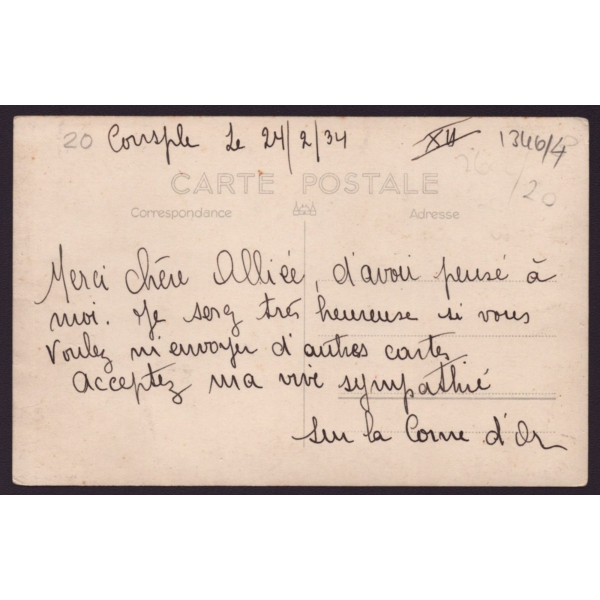 20 Consple Le 24/2/34 XII 1346/4
20
CARTE POSTALE
Correspondance Adresse
Merci chère Alliée, d'avoir pensé à
moi. Je serez très heureuse si vous
voulez m'envoyer d'autres cartes
Acceptez ma vive sympathie
Sur la Corne d'Or